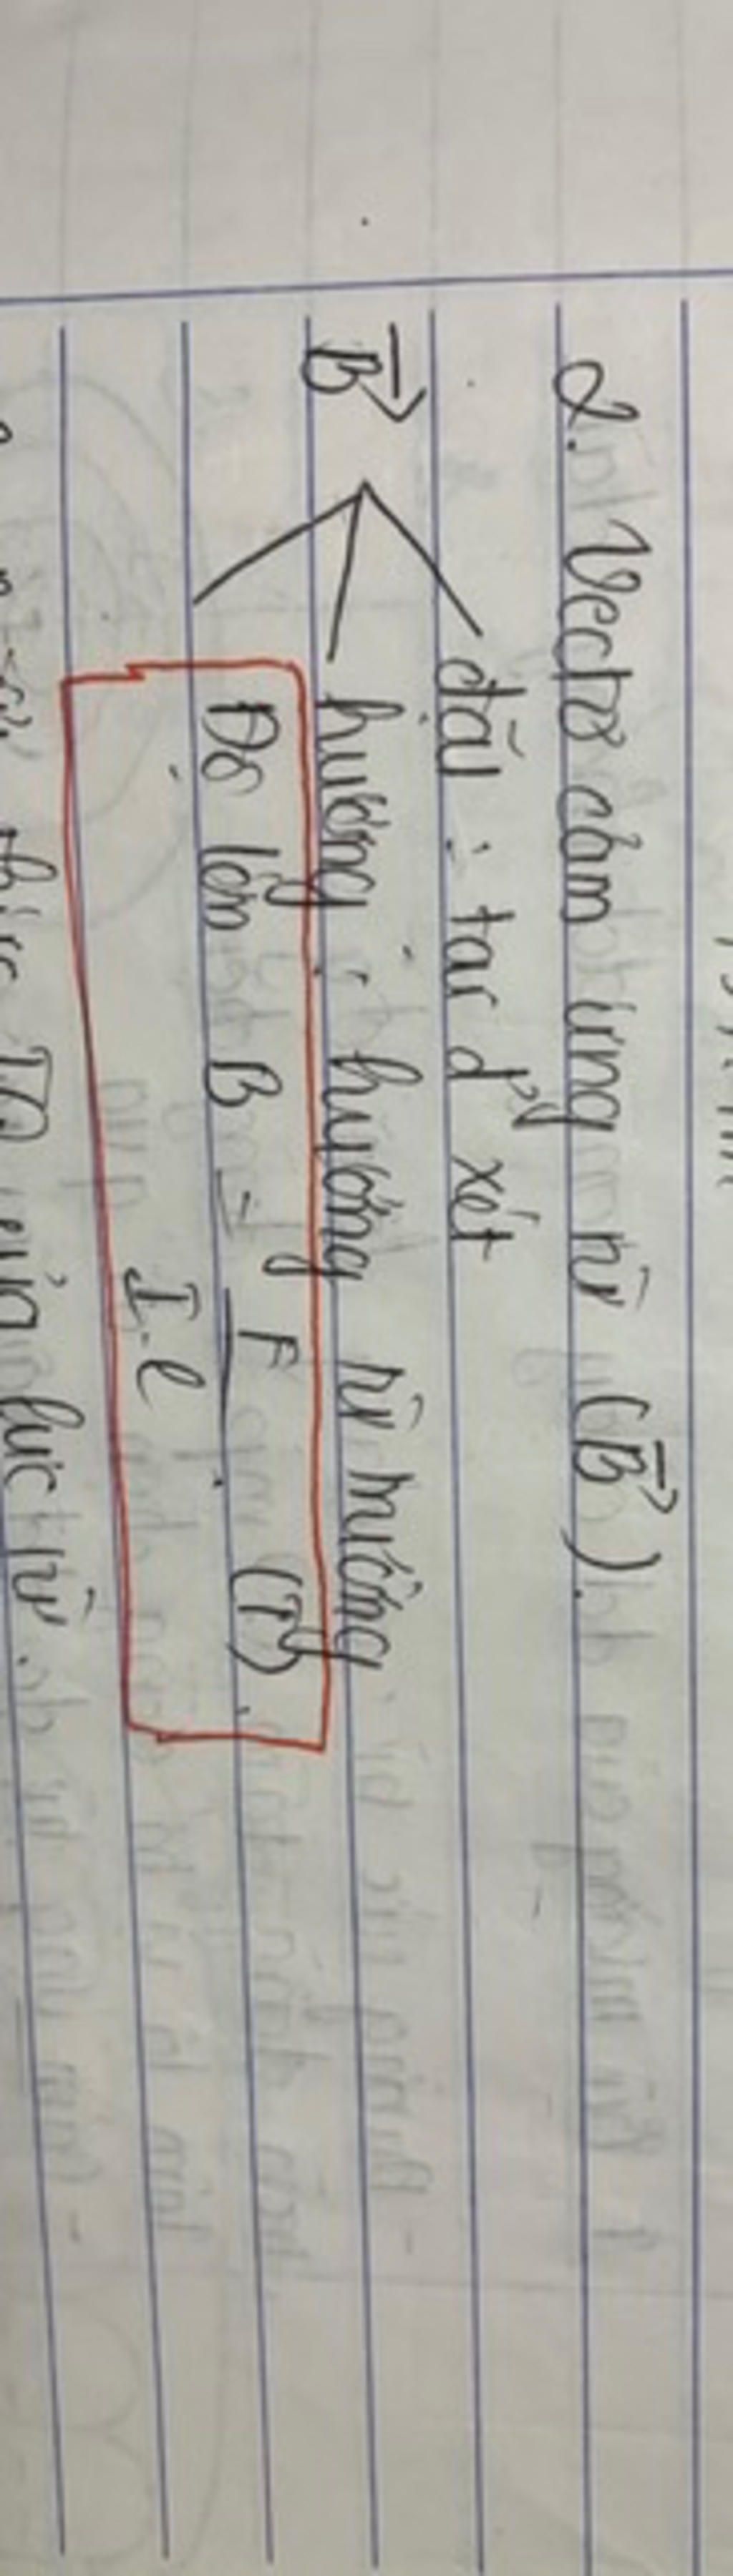 2. Vectơ cảm ứng từ (B⃗).
B⃗
đặt : tại đ' xét
hướng : hướng từ trường
Độ lớn B = F / I.l (T).
thức TQ của lực từ.